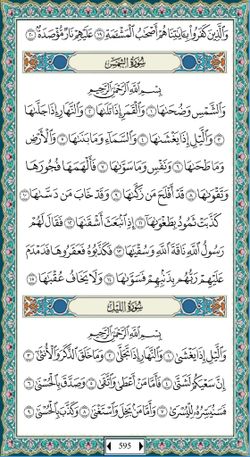 وَالَّذِينَ كَفَرُوا بِـَٔايَٰتِنَا هُمْ أَصْحَٰبُ الْمَشْـَٔمَةِ ١٩ عَلَيْهِمْ نَارٌ مُّؤْصَدَةٌۢ ٢٠
سُورَةُ الشَّمْسِ
بِسْمِ اللَّهِ الرَّحْمَٰنِ الرَّحِيمِ
وَالشَّمْسِ وَضُحَىٰهَا ١ وَالْقَمَرِ إِذَا تَلَىٰهَا ٢ وَالنَّهَارِ إِذَا جَلَّىٰهَا
٣ وَالَّيْلِ إِذَا يَغْشَىٰهَا ٤ وَالسَّمَآءِ وَمَا بَنَىٰهَا ٥ وَالْأَرْضِ
وَمَا طَحَىٰهَا ٦ وَنَفْسٍ وَمَا سَوَّىٰهَا ٧ فَأَلْهَمَهَا فُجُورَهَا
وَتَقْوَىٰهَا ٨ قَدْ أَفْلَحَ مَن زَكَّىٰهَا ٩ وَقَدْ خَابَ مَن دَسَّىٰهَا ١٠
كَذَّبَتْ ثَمُودُ بِطَغْوَىٰهَآ ١١ إِذِ انۢبَعَثَ أَشْقَىٰهَا ١٢ فَقَالَ لَهُمْ
رَسُولُ اللَّهِ نَاقَةَ اللَّهِ وَسُقْيَٰهَا ١٣ فَكَذَّبُوهُ فَعَقَرُوهَا فَدَمْدَمَ
عَلَيْهِمْ رَبُّهُم بِذَنۢبِهِمْ فَسَوَّىٰهَا ١٤ وَلَا يَخَافُ عُقْبَٰهَا ١٥
سُورَةُ اللَّيْلِ
بِسْمِ اللَّهِ الرَّحْمَٰنِ الرَّحِيمِ
وَالَّيْلِ إِذَا يَغْشَىٰ ١ وَالنَّهَارِ إِذَا تَجَلَّىٰ ٢ وَمَا خَلَقَ الذَّكَرَ وَالْأُنثَىٰٓ ٣
إِنَّ سَعْيَكُمْ لَشَتَّىٰ ٤ فَأَمَّا مَنْ أَعْطَىٰ وَاتَّقَىٰ ٥ وَصَدَّقَ بِالْحُسْنَىٰ ٦
فَسَنُيَسِّرُهُۥ لِلْيُسْرَىٰ ٧ وَأَمَّا مَنۢ بَخِلَ وَاسْتَغْنَىٰ ٨ وَكَذَّبَ بِالْحُسْنَىٰ ٩
595